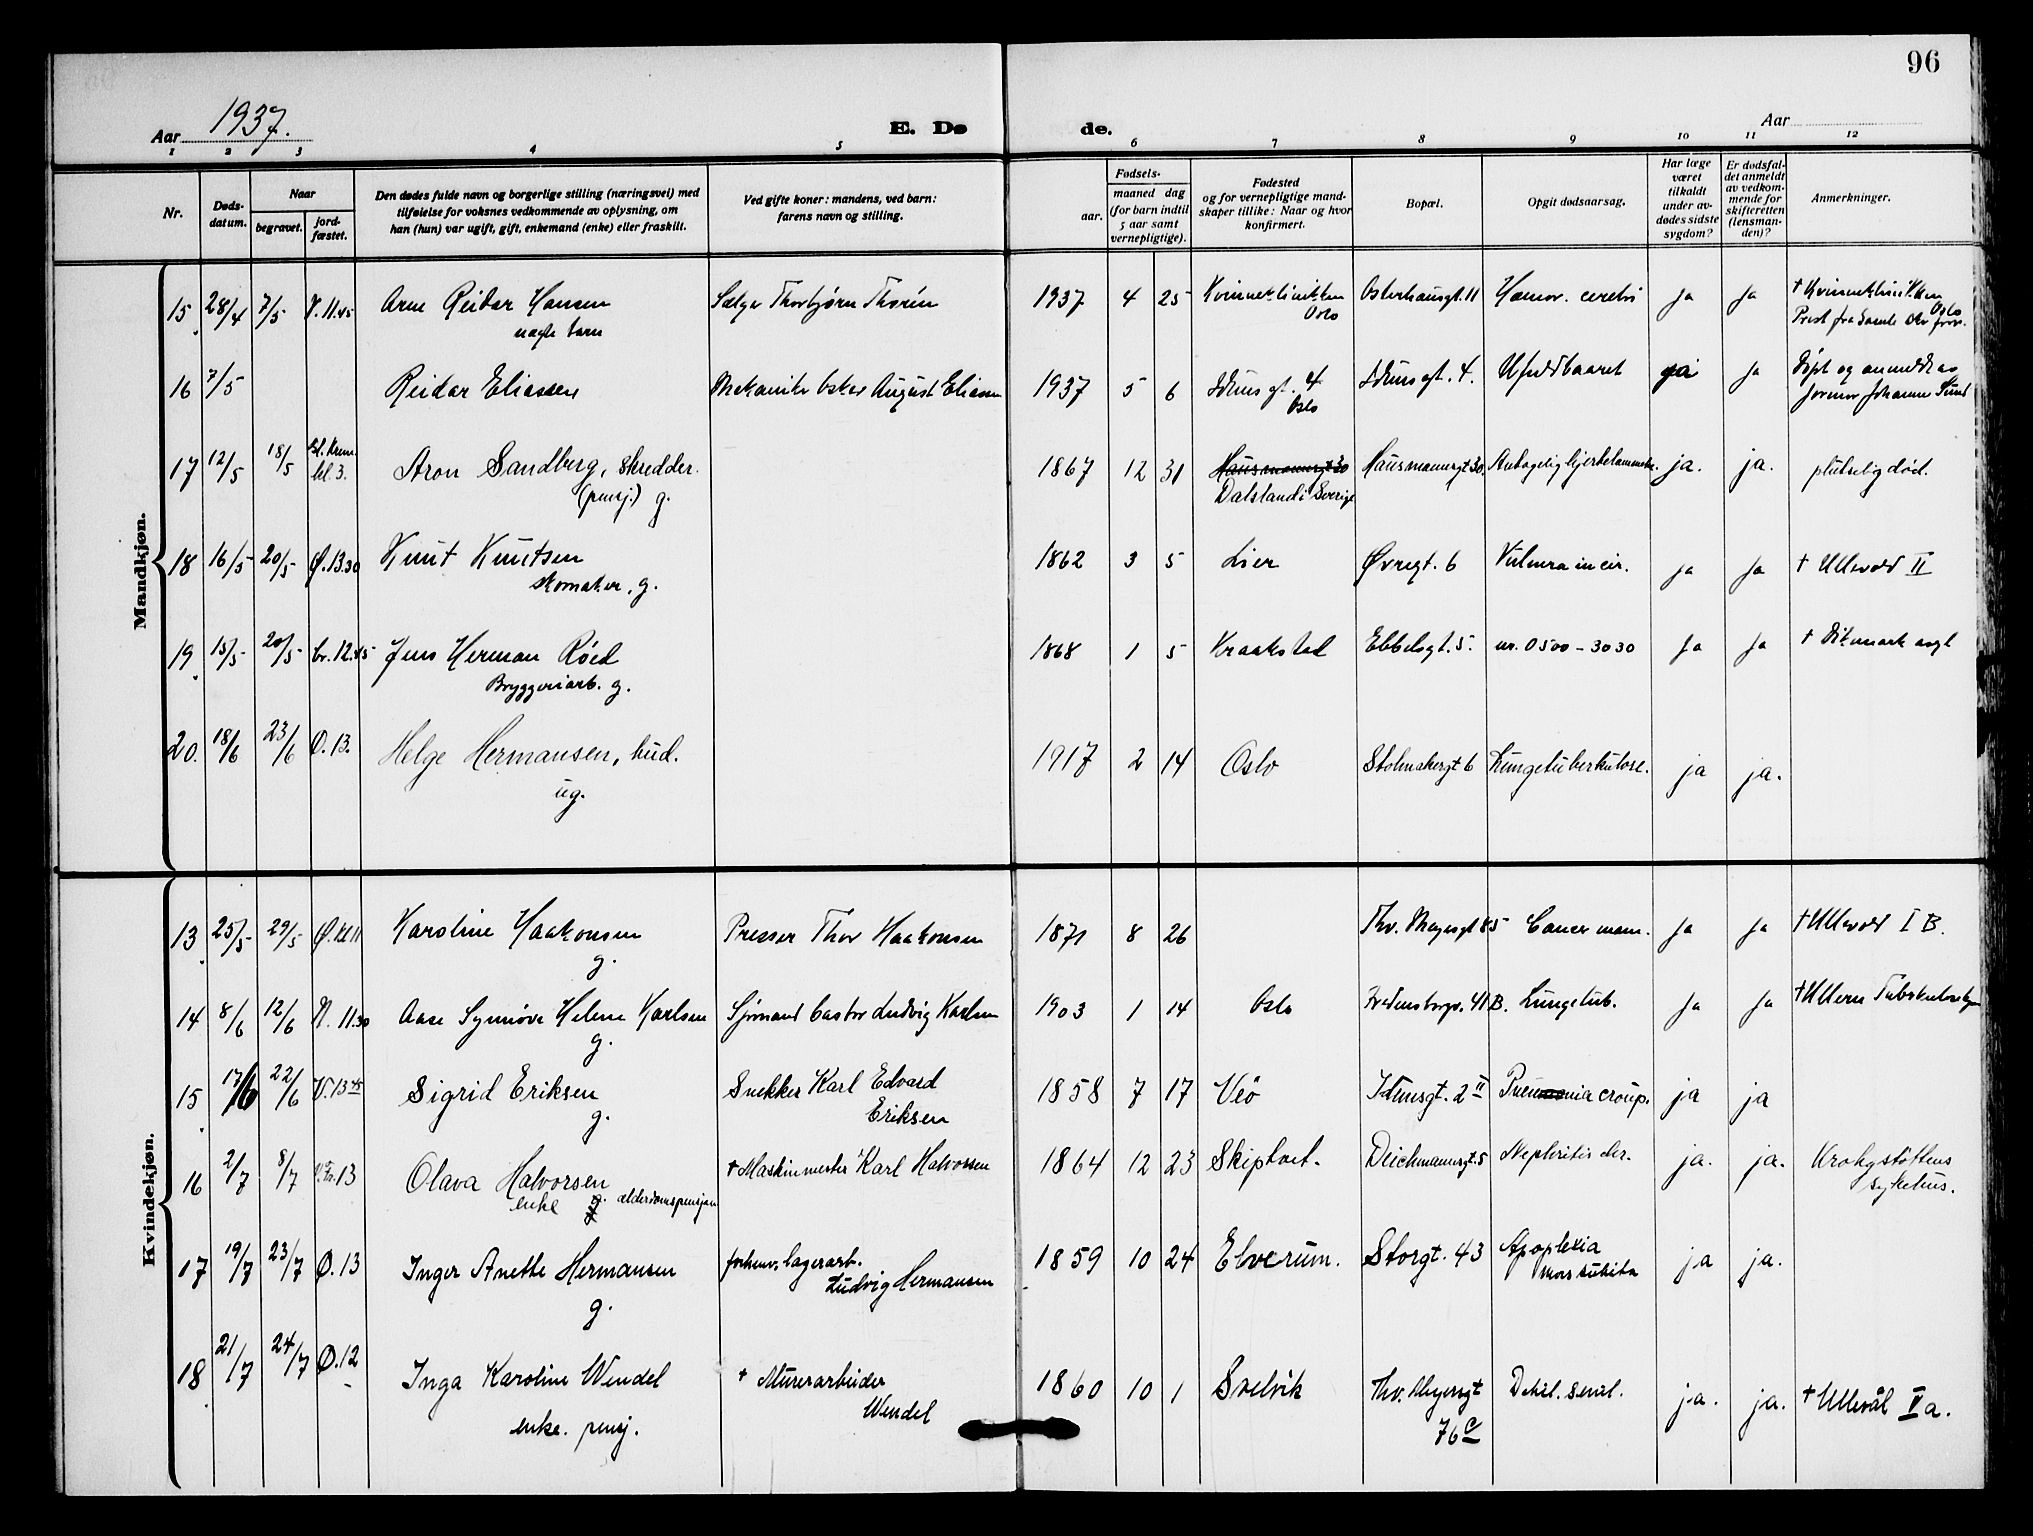 96
Aar 1937.
E. Dø
de.
Aar
1 2 3 4 5 6 7 8 9 10 11 12
Nr.
Døds-
datum.
Naar
begravet.
jord-
fæstet.
Den dødes fulde navn og borgerlige stilling (næringsvei) med
tilføielse for voksnes vedkommende av oplysning, om
han (hun) var ugift, gift, enkemand (enke) eller fraskilt.
Ved gifte koner: mandens, ved barn:
farens navn og stilling.
Fødsels-
aar.
maaned dag
(for barn indtil
5 aar samt
vernepligtige).
Fødested
og for vernepligtige mand-
skaper tillike: Naar og hvor
konfirmert.
Bopæl.
Opgit dødsaarsag.
Har læge
været
tilkaldt
under av-
dødes sidste
sygdom?
Er dødsfal-
det anmeldt
av vedkom-
mende for
skifteretten
(lensman-
den)?
Anmerkninger.
Mandkjøn.
15 28/4 7/5 V. 11.45 Arne Reidar Hansen Selger Thorbjørn Thorén 1937 4 25 Kvinneklinikken Osterhausgt. 11 Hæmor. cerebri ja ja † Kvinneklinikken
uegte barn Oslo Oslo
Prest fra Gamle Aker
16 7/5 Reidar Eliassen Mekaniker Oskar August Eliassen 1937 5 6 Iduns gt. 4 Idunsgt. 4. Ufuldbaaret ja ja Døpt og anmeldt av
Oslo jormor Johanne Sund
17 12/5 18/5 Gl. Krem. kl. 3. Aron Sandberg, skredder. 1867 12 31 Hausmannsgt 30 Hausmannsgt 30 Antagelig hjertelammelse. ja. ja. plutselig død.
(pensj.) g. Dalsland i Sverige
18 16/5 20/5 Ø. 13.30 Knut Knutsen 1862 3 5 Lier Øvregt. 6 Vulnera incis. ja ja † Ullevold II
skomaker, g.
19 15/5 20/5 Cr. 12.45 Jens Herman Röed 1868 1 5 Kraakstad Ebbelsgt. 5. nr. 0500 - 3030 ja ja † Dikemark asyl
Bryggeriarb. g.
20. 18/6 23/6 Ø. 13. Helge Hermansen, bud. 1917 2 14 Oslo Stolmakergt 6 Lungetuberkulose. ja ja.
ug.
Kvindekjøn.
13 25/5 29/5 Ø. kl 11 Karoline Haakonsen Presser Thor Haakonsen 1871 8 26 Thv. Meyersgt 85 Cancer mam. ja ja † Ullevold I B.
g.
14 8/6 12/6 N. 11.30 Aase Synnöve Helene Karlsen Sjömand Castor Ludvig Karlsen 1903 1 14 Oslo Fredensborgv. 41 B. Lungetub. ja ja † Ullern
g.
15 17/6 22/6 V. 13 45 Sigrid Eriksen Snekker Karl Edvard 1858 7 17 Veö Idunsgt. 2 II Pneumonia croup. ja ja
g. Eriksen
16 2/7 8/7 13 Olava Halvorsen † Maskinmester Karl Halvorsen 1864 12 23 Skiptvet. Deichmannsgt. 5 Nephritis chr. ja. ja. Krohgstöttens
enke g. alderdomspensjon sykehus.
17 19/7 23/7 Ø. 13 Inger Anette Hermansen forhenv. lagerarb. 1859 10 24 Elverum. Storgt. 43 Apoplexia ja ja.
g. Ludvig Hermansen mors subita
18 21/7 24/7 Ø. 12 Inga Karoline Wendel † Murerarbeider 1860 10 1 Svelvik Thv. Meyersgt Debil. senil. ja. ja. † Ullevål V a.
enke. pensj. Wendel 76 c